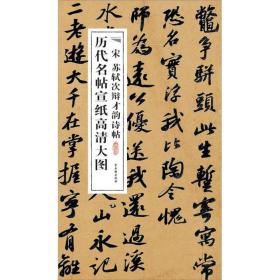 鼈爭駢頭此生暫寄寓常
恐名實浮我比陶令愧
師為遠公優送我還過溪
宋 苏轼次辩才韵诗帖
历代名帖宣纸高清大图
人永記
二老遊大千在掌握寧有離